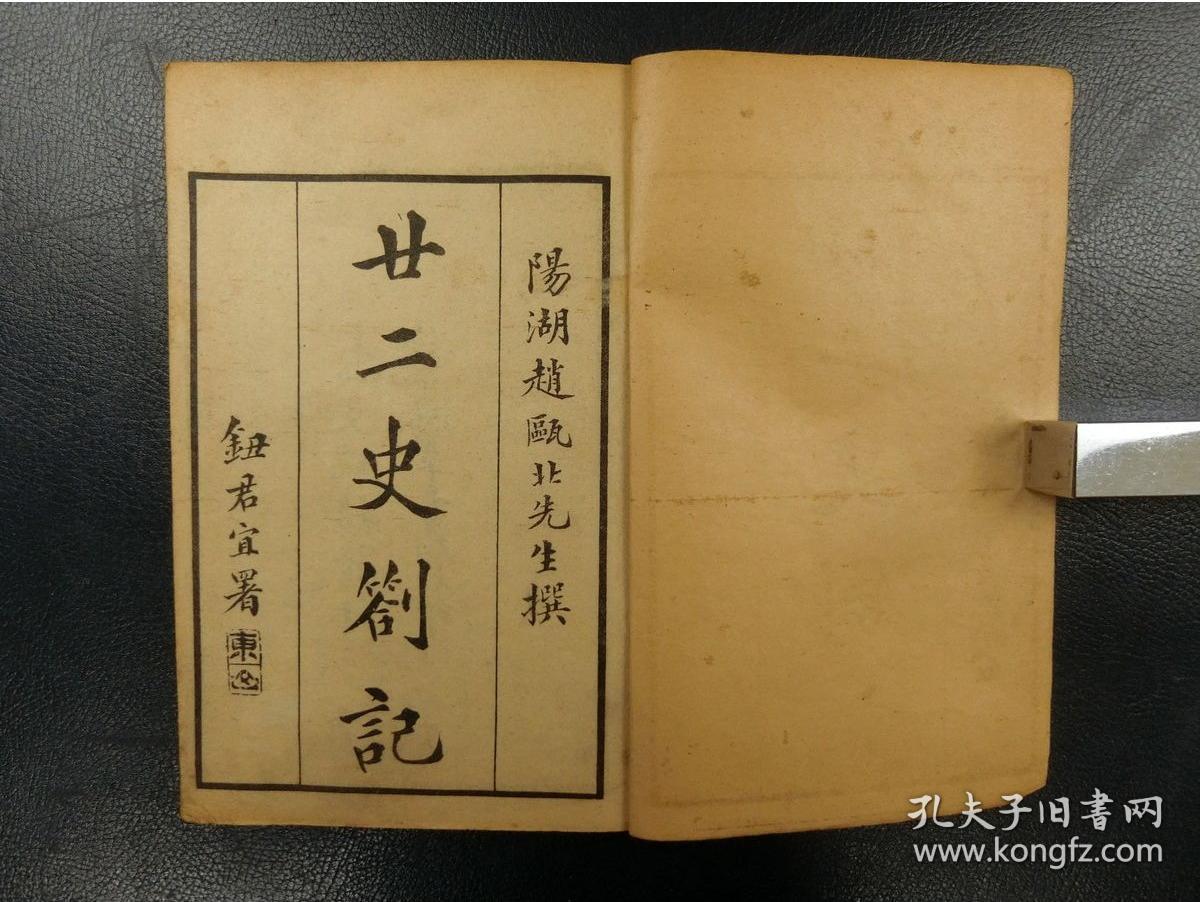 陽湖趙甌北先生撰
廿二史劄記
鈕君宜署
孔夫子旧書网
www.kongfz.com